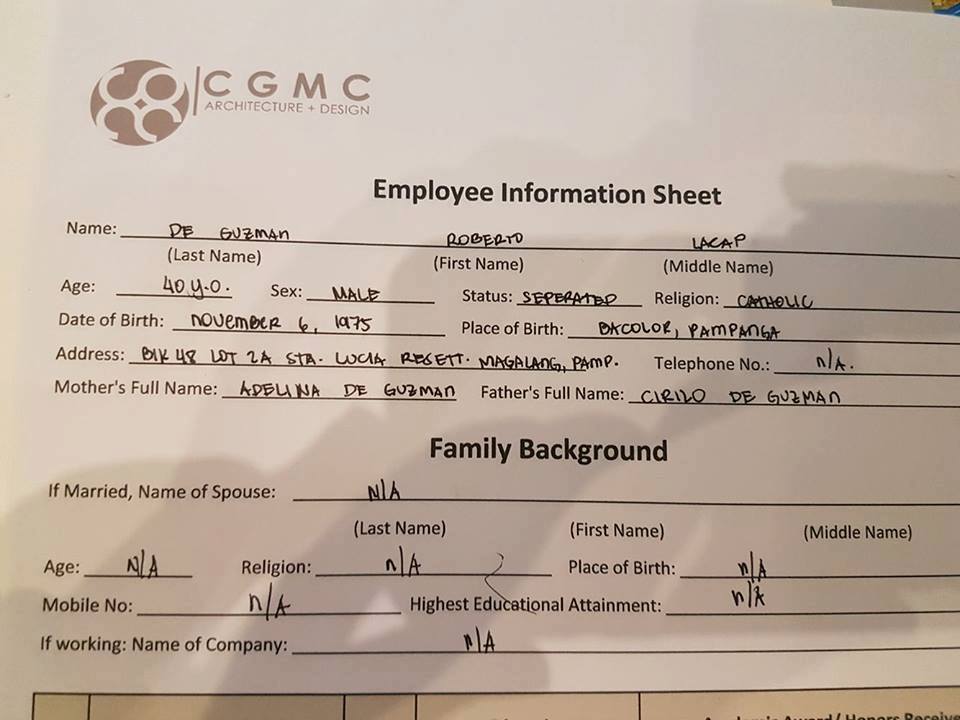 CGMC
ARCHITECTURE + DESIGN
Employee Information Sheet
Name: DE GUZMAN ROBERTO LACAP
(Last Name) (First Name) (Middle Name)
Age: 40 y.o. Sex: MALE Status: SEPERATED Religion: CATHOLIC
Date of Birth: NOVEMBER 6, 1975 Place of Birth: BACOLOR, PAMPANGA
Address: BLK 48 LOT 2A STA. LUCIA RESETT. MAGALANG, PAMP. Telephone No.: n/A.
Mother's Full Name: ADELINA DE GUZMAN Father's Full Name: CIRILO DE GUZMAN
Family Background
If Married, Name of Spouse: N/A
(Last Name) (First Name) (Middle Name)
Age: N/A Religion: n/A Place of Birth: n/A
Mobile No: n/A Highest Educational Attainment: n/A
If working: Name of Company: n/A